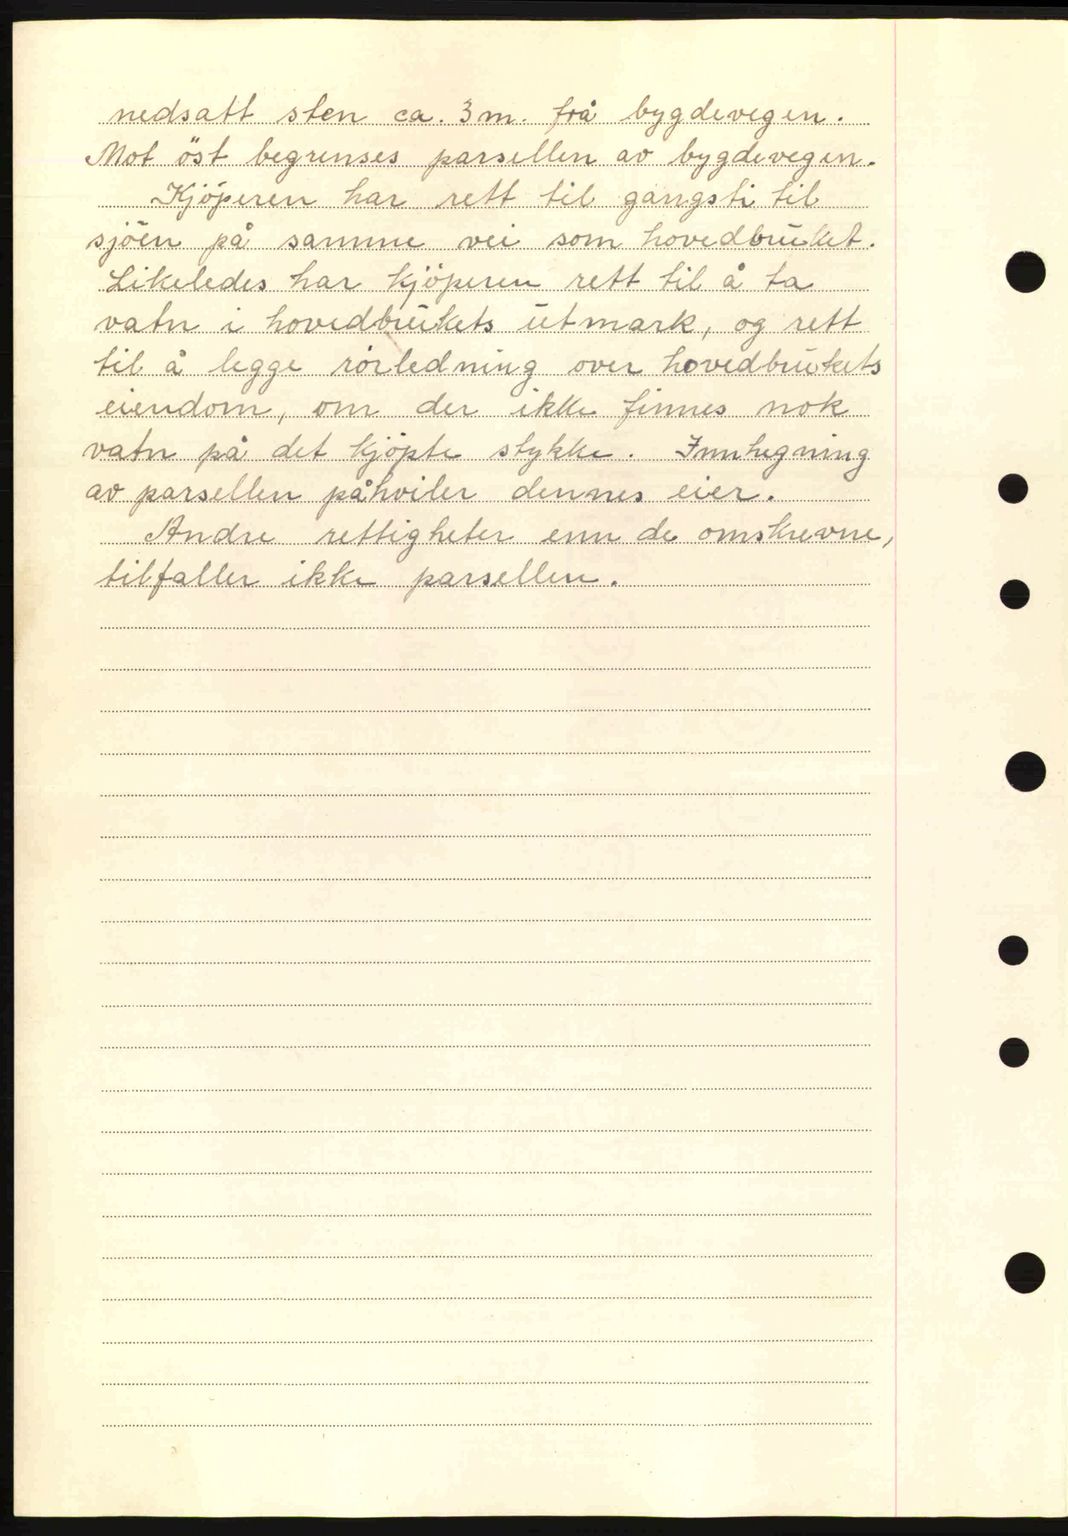 nedsatt sten ca. 3 m. frå bygdevegen.
Mot öst begrenses parsellen av bygdevegen.
Kjöperen har rett til gangsti til
sjöen på samme vei som hovedbruket.
Likeledes har kjöperen rett til å ta
vatn i hovedbrukets utmark, og rett
til å legge rörledning over hovedbrukets
eiendom, om der ikke finnes nok
vatn på det kjöpte stykke. Innhegning
av parsellen påhviler dennes eier.
Andre rettigheter enn de omskrevne,
tilfaller ikke parsellen.